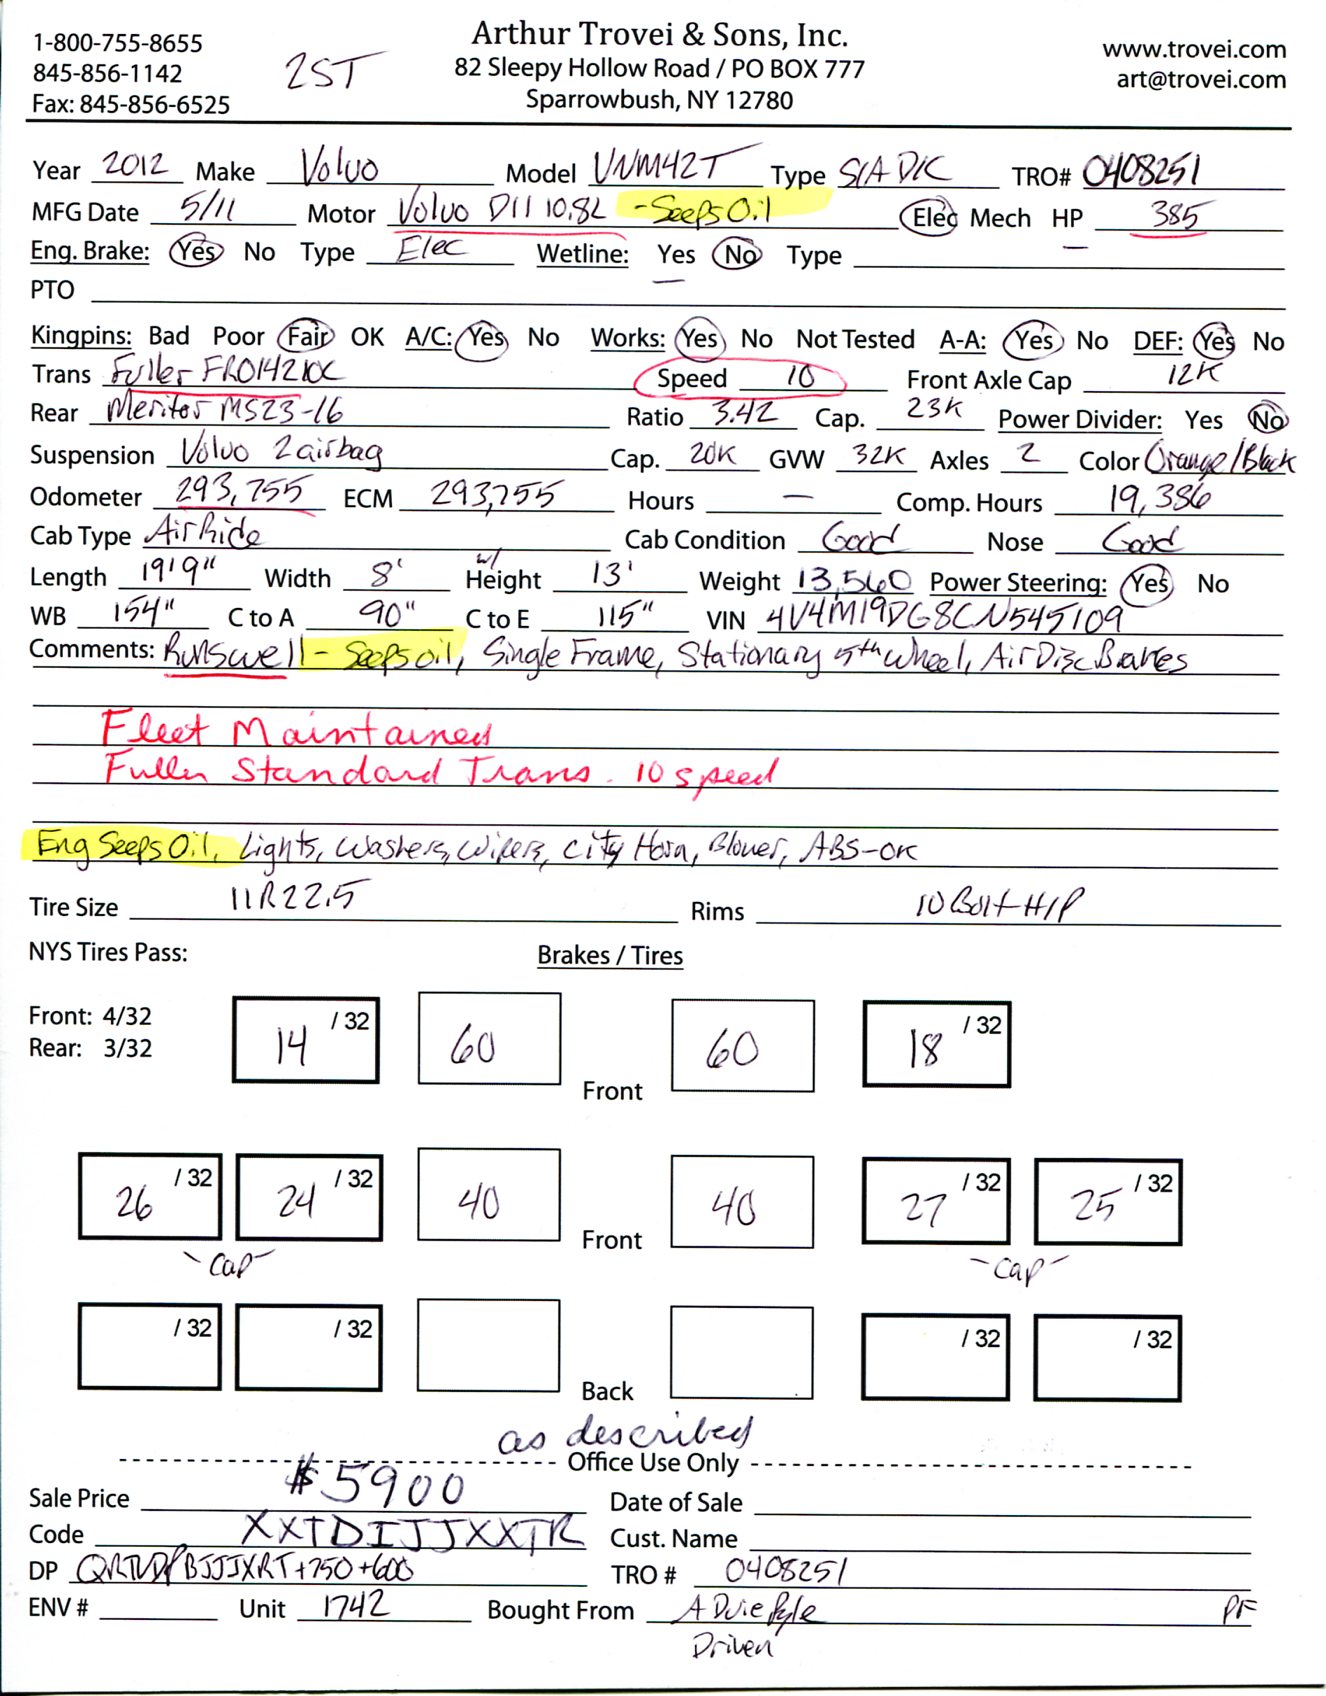 1-800-755-8655
845-856-1142
Fax: 845-856-6525
2ST
Arthur Trovei & Sons, Inc.
82 Sleepy Hollow Road / PO BOX 777
Sparrowbush, NY 12780
www.trovei.com
art@trovei.com
Year 2012 Make Volvo Model VNM42T Type S/A D/C TRO# 0408251
MFG Date 5/11 Motor Volvo D11 10.8L - Seeps Oil Elec Mech HP 385
Eng. Brake: Yes No Type Elec Wetline: Yes No Type
PTO
Kingpins: Bad Poor Fair OK A/C: Yes No Works: Yes No Not Tested A-A: Yes No DEF: Yes No
Trans Fuller FRO14210C Speed 10 Front Axle Cap 12K
Rear Meritor MS23-16 Ratio 3.42 Cap. 23K Power Divider: Yes No
Suspension Volvo 2 airbag Cap. 20K GVW 32K Axles 2 Color Orange/Black
Odometer 293,755 ECM 293,755 Hours — Comp. Hours 19,386
Cab Type Air Ride Cab Condition Good Nose Good
Length 19'9" Width 8' w/ Height 13' Weight 13,560 Power Steering: Yes No
WB 154" C to A 90" C to E 115" VIN 4V4M19DG8CN545109
Comments: Runs well - Seeps oil, Single Frame, Stationary 5th Wheel, Air Disc Brakes
Fleet Maintained
Fuller Standard Trans. 10 speed
Eng Seeps Oil, Lights, Washers, Wipers, City Horn, Blower, ABS-OK
Tire Size 11R22.5 Rims 10 Bolt H/P
NYS Tires Pass: Brakes / Tires
Front: 4/32
Rear: 3/32
14 /32 60 Front 60 18 /32
26 /32 24 /32 40 Front 40 27 /32 25 /32
-Cap- -Cap-
/32 /32 Back /32 /32
as described
Office Use Only
Sale Price $5900 Date of Sale
Code XXTDIJJXXTR Cust. Name
DP +750+600 TRO # 0408251
ENV # Unit 1742 Bought From A Duie Pyle PF
Driven